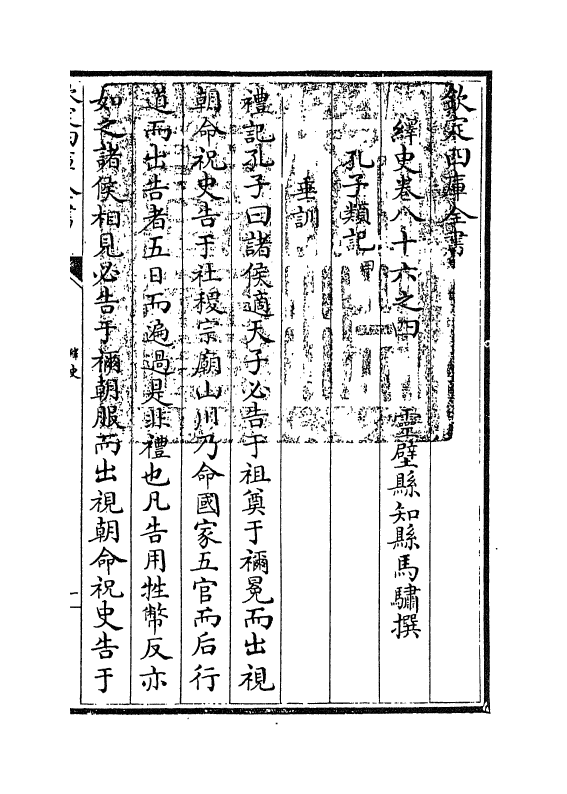 欽定四庫全書
繹史卷八十六之四
靈璧縣知縣馬驌撰
孔子類記四
垂訓
禮記孔子曰諸侯適天子必告于祖奠于禰冕而出視
朝命祝史告于社稷宗廟山川乃命國家五官而后行
道而出告者五日而遍過是非禮也凡告用牲幣反亦
如之諸侯相見必告于禰朝服而出視朝命祝史告于
欽定四庫全書
繹史
一